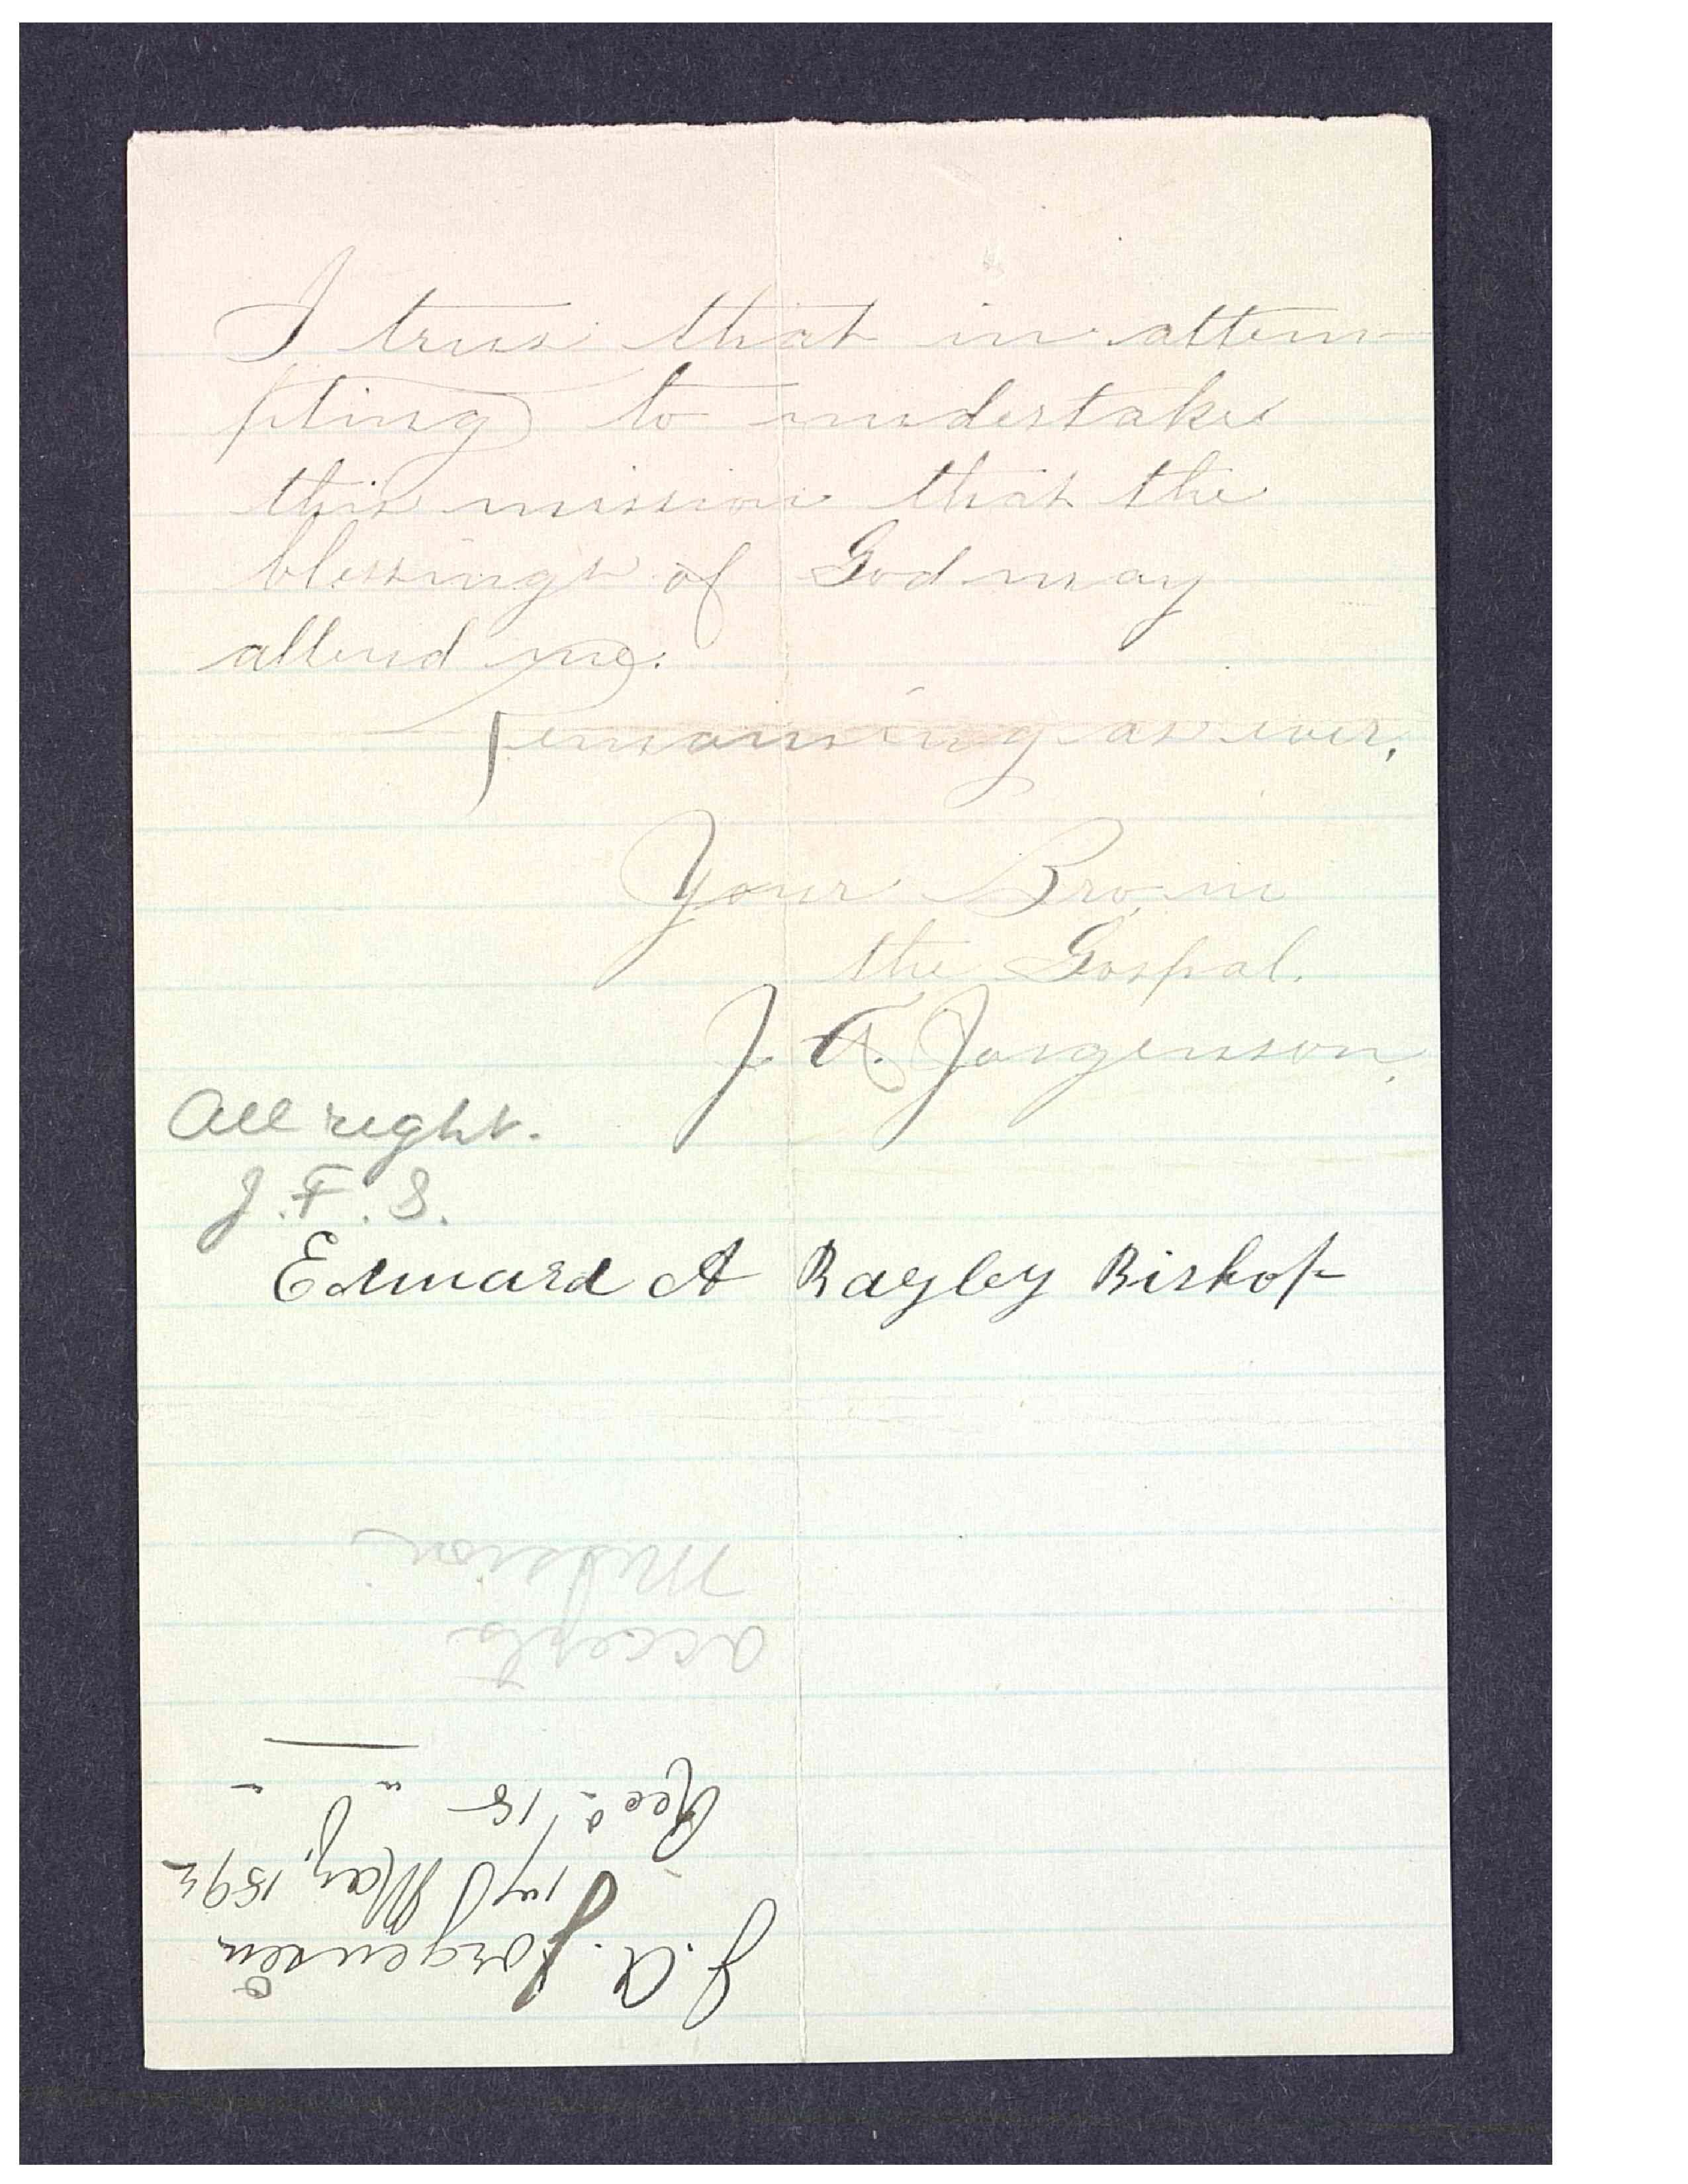 I trust that in attem-
pting to undertake
this mission that the
blessings of God may
attend me.
Remaining as ever,
Your Bro. in
the Gospal.
J. A. Jorgenson.
All right.
J. F. S.
Edward A Bagley Bishop
J. A. Jorgensen
May, 189
Recd 18 " "
accepts
Mission